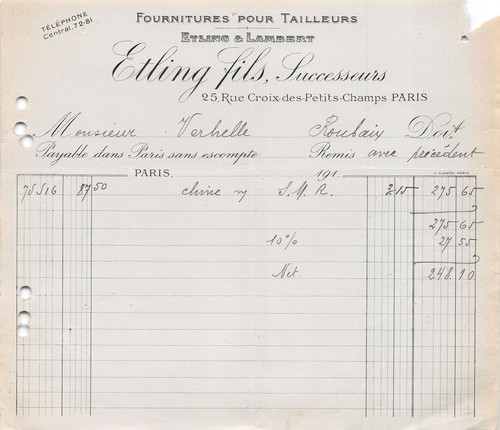 TÉLÉPHONE
Central. 72-81
FOURNITURES POUR TAILLEURS
ETLING & LAMBERT
Etling fils, Successeurs
25, Rue Croix-des-Petits-Champs PARIS
Monsieur Verhelle Roubaix Doit
Payable dans Paris sans escompte Remis avec précédent
PARIS, 191
75516 87 50 chine S.M.R. 3 15 275 65
275 65
10% 27 55
Net. 248.10